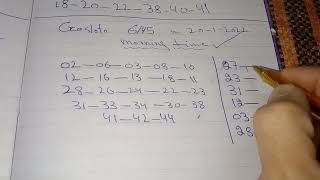 18-20-22-38-40-41
6/45 20-1-2022
morning time ✓
02-06-03-08-10
12-16-13-18-11
28-26-24-22-23
31-33-34-30-38
41-42-44
27-
23-
31-
12-
03-
28-